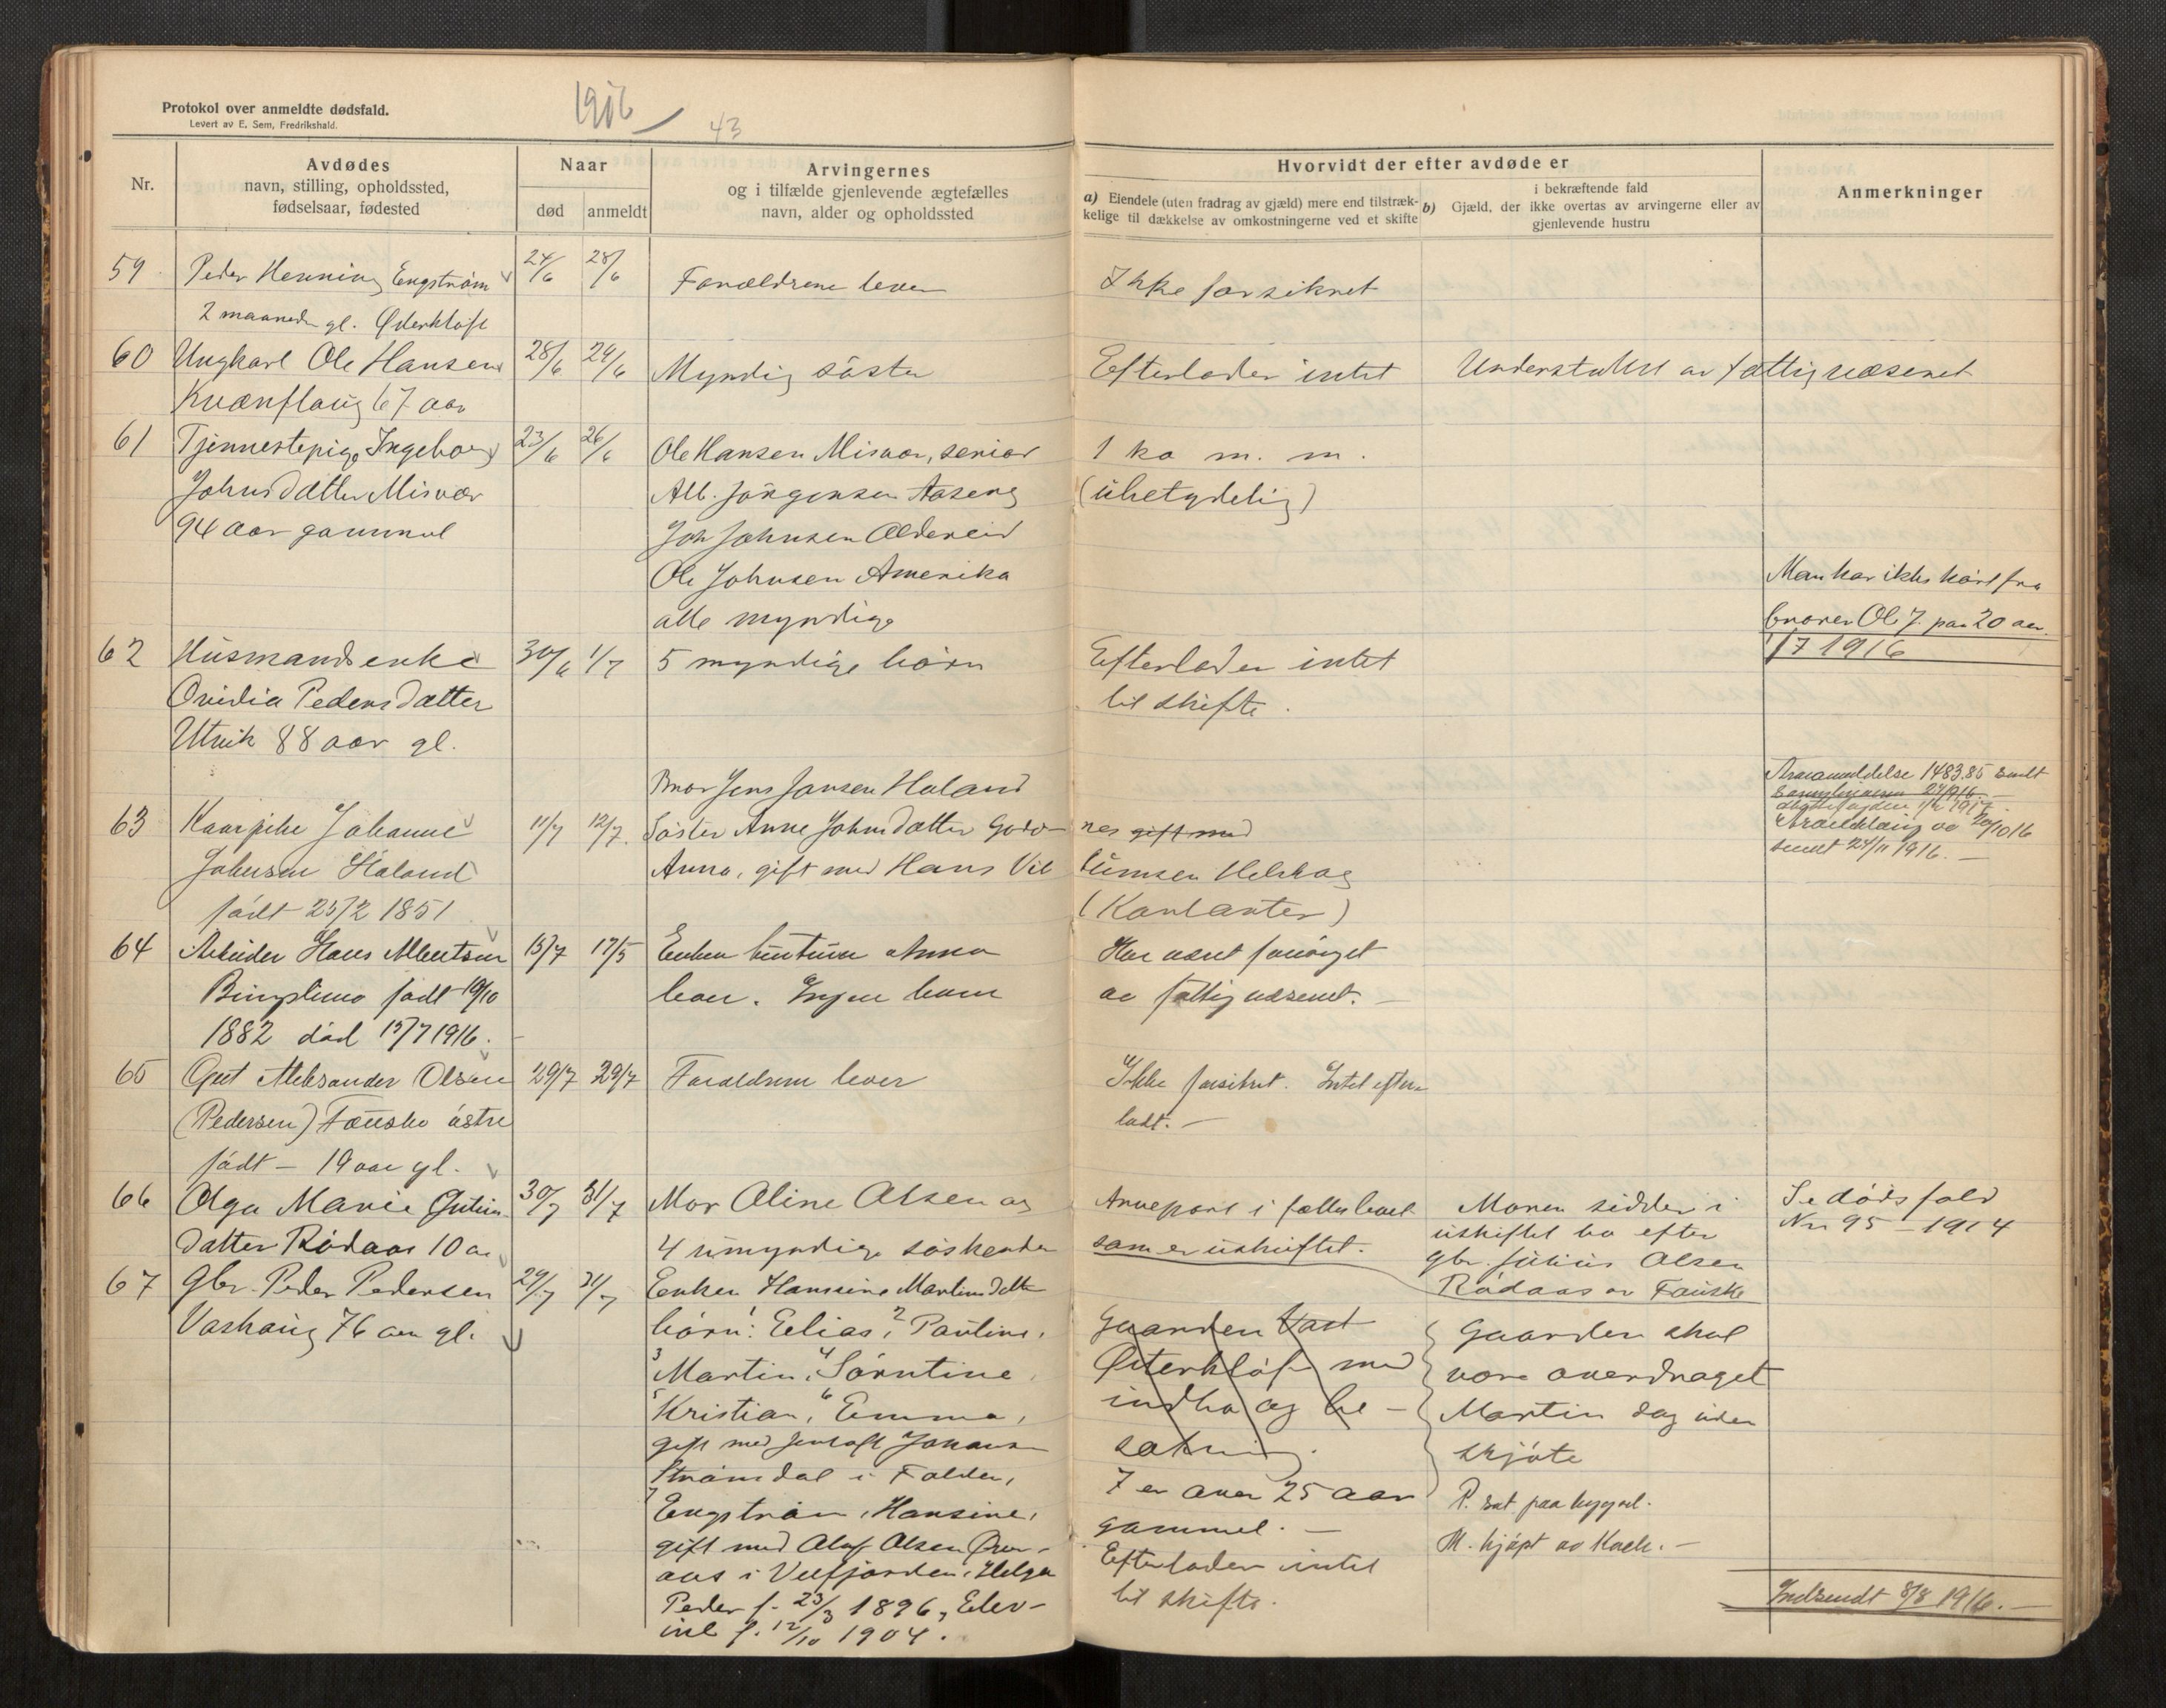 Protokol over anmeldte dødsfald.
Levert av E. Sem, Fredrikshald.
1916
43
Nr.
Avdødes
navn, stilling, opholdssted,
fødselsaar, fødested
Naar
død
anmeldt
Arvingernes
og i tilfælde gjenlevende ægtefælles
navn, alder og opholdssted
Hvorvidt der efter avdøde er
a) Eiendele (uten fradrag av gjæld) mere end tilstræk-
kelige til dækkelse av omkostningerne ved et skifte
i bekræftende fald
b) Gjæld, der ikke overtas av arvingerne eller av
gjenlevende hustru
Anmerkninger
59 Peder Henning Engstrøm 24/6 28/6 Forældrene lever Ikke forsikret
2 maaneder gl. Østerkløft
60 Ungkarl Ole Hansen 28/6 29/6 Myndig søster Efterlader intet Understøttet av fattigvæsenet
Kvænflaug 67 aar
61 Tjenestepige Ingeborg 23/6 26/6 Ole Hansen Misvær, senior 1 ko m. m.
Johnsdatter Misvær Alb. Jørgensen Aaseng (ubetydelig)
94 aar gammel Joh Johnsen Aldereid
Ole Johnsen Amerika Man har ikke hørt fra
alle myndige broren Ole J. paa 20 aar.
62 Husmandsenke 30/6 1/7 5 myndige børn Efterlader intet 1/7 1916
Ovidia Pedersdatter til skifte.
Utvik 88 aar gl.
Bror Jens Jansen Haland 1483.85 sendt
63 Johanne 11/7 12/7. Søster Anne Johnsdatter Godø- nes gift med 20/10 16
Johnsen Haland Anna, gift med Hans Vil lumsen Helskog sendt 24/11 1916.
født 25/2 1851 (Kontanter)
64 Arbeider Hans Albertsen 15/7 17/5 Enken Anna Har været forsørget
født 19/10 lever. Ingen barn av fattigvæsenet.
1882 død 15/7 1916.
65 Gut Aleksander Olsen 29/7 29/7 Forældrene lever Ikke forsikret. Intet efter-
(Pedersen) Fauske østre ladt.
født – 19 aar gl.
66 Olga Marie Julius- 30/7 31/7 Mor Aline Olsen og Arvepart i fællesboet Moren sidder i Se dødsfald
datter Rødaas 10 aar 4 umyndige søskende som er uskiftet. uskiftet bo efter Nr 95 – 1914
gbr. Julius Olsen
67 Gbr. Peder Pedersen 29/7 31/7 Enken Hansine Martinsdatter Rødaas av Fauske
Vashaug 76 aar gl. børn: 1 Elias, 2 Pauline, Gaarden Gaarden skal
3 Martin, 4 Sørntine, Østerkløft med være overdraget
5 Kristian, 6 Emma, indbo og be- Martin dog uten
gift med Johansen sætning. skjøte
Strømdal i Folden, 7 er over 25 aar P. sat paa bygsel.
7 Engstrøm, Hansine, gammel. M. kjøpt av Koch.
gift med Olaf Olsen Efterlader intet
aas i Velfjorden, Helga til skifte. Indsendt 8/8 1916.
Peder f. 23/3 1896,
f. 12/10 1904.